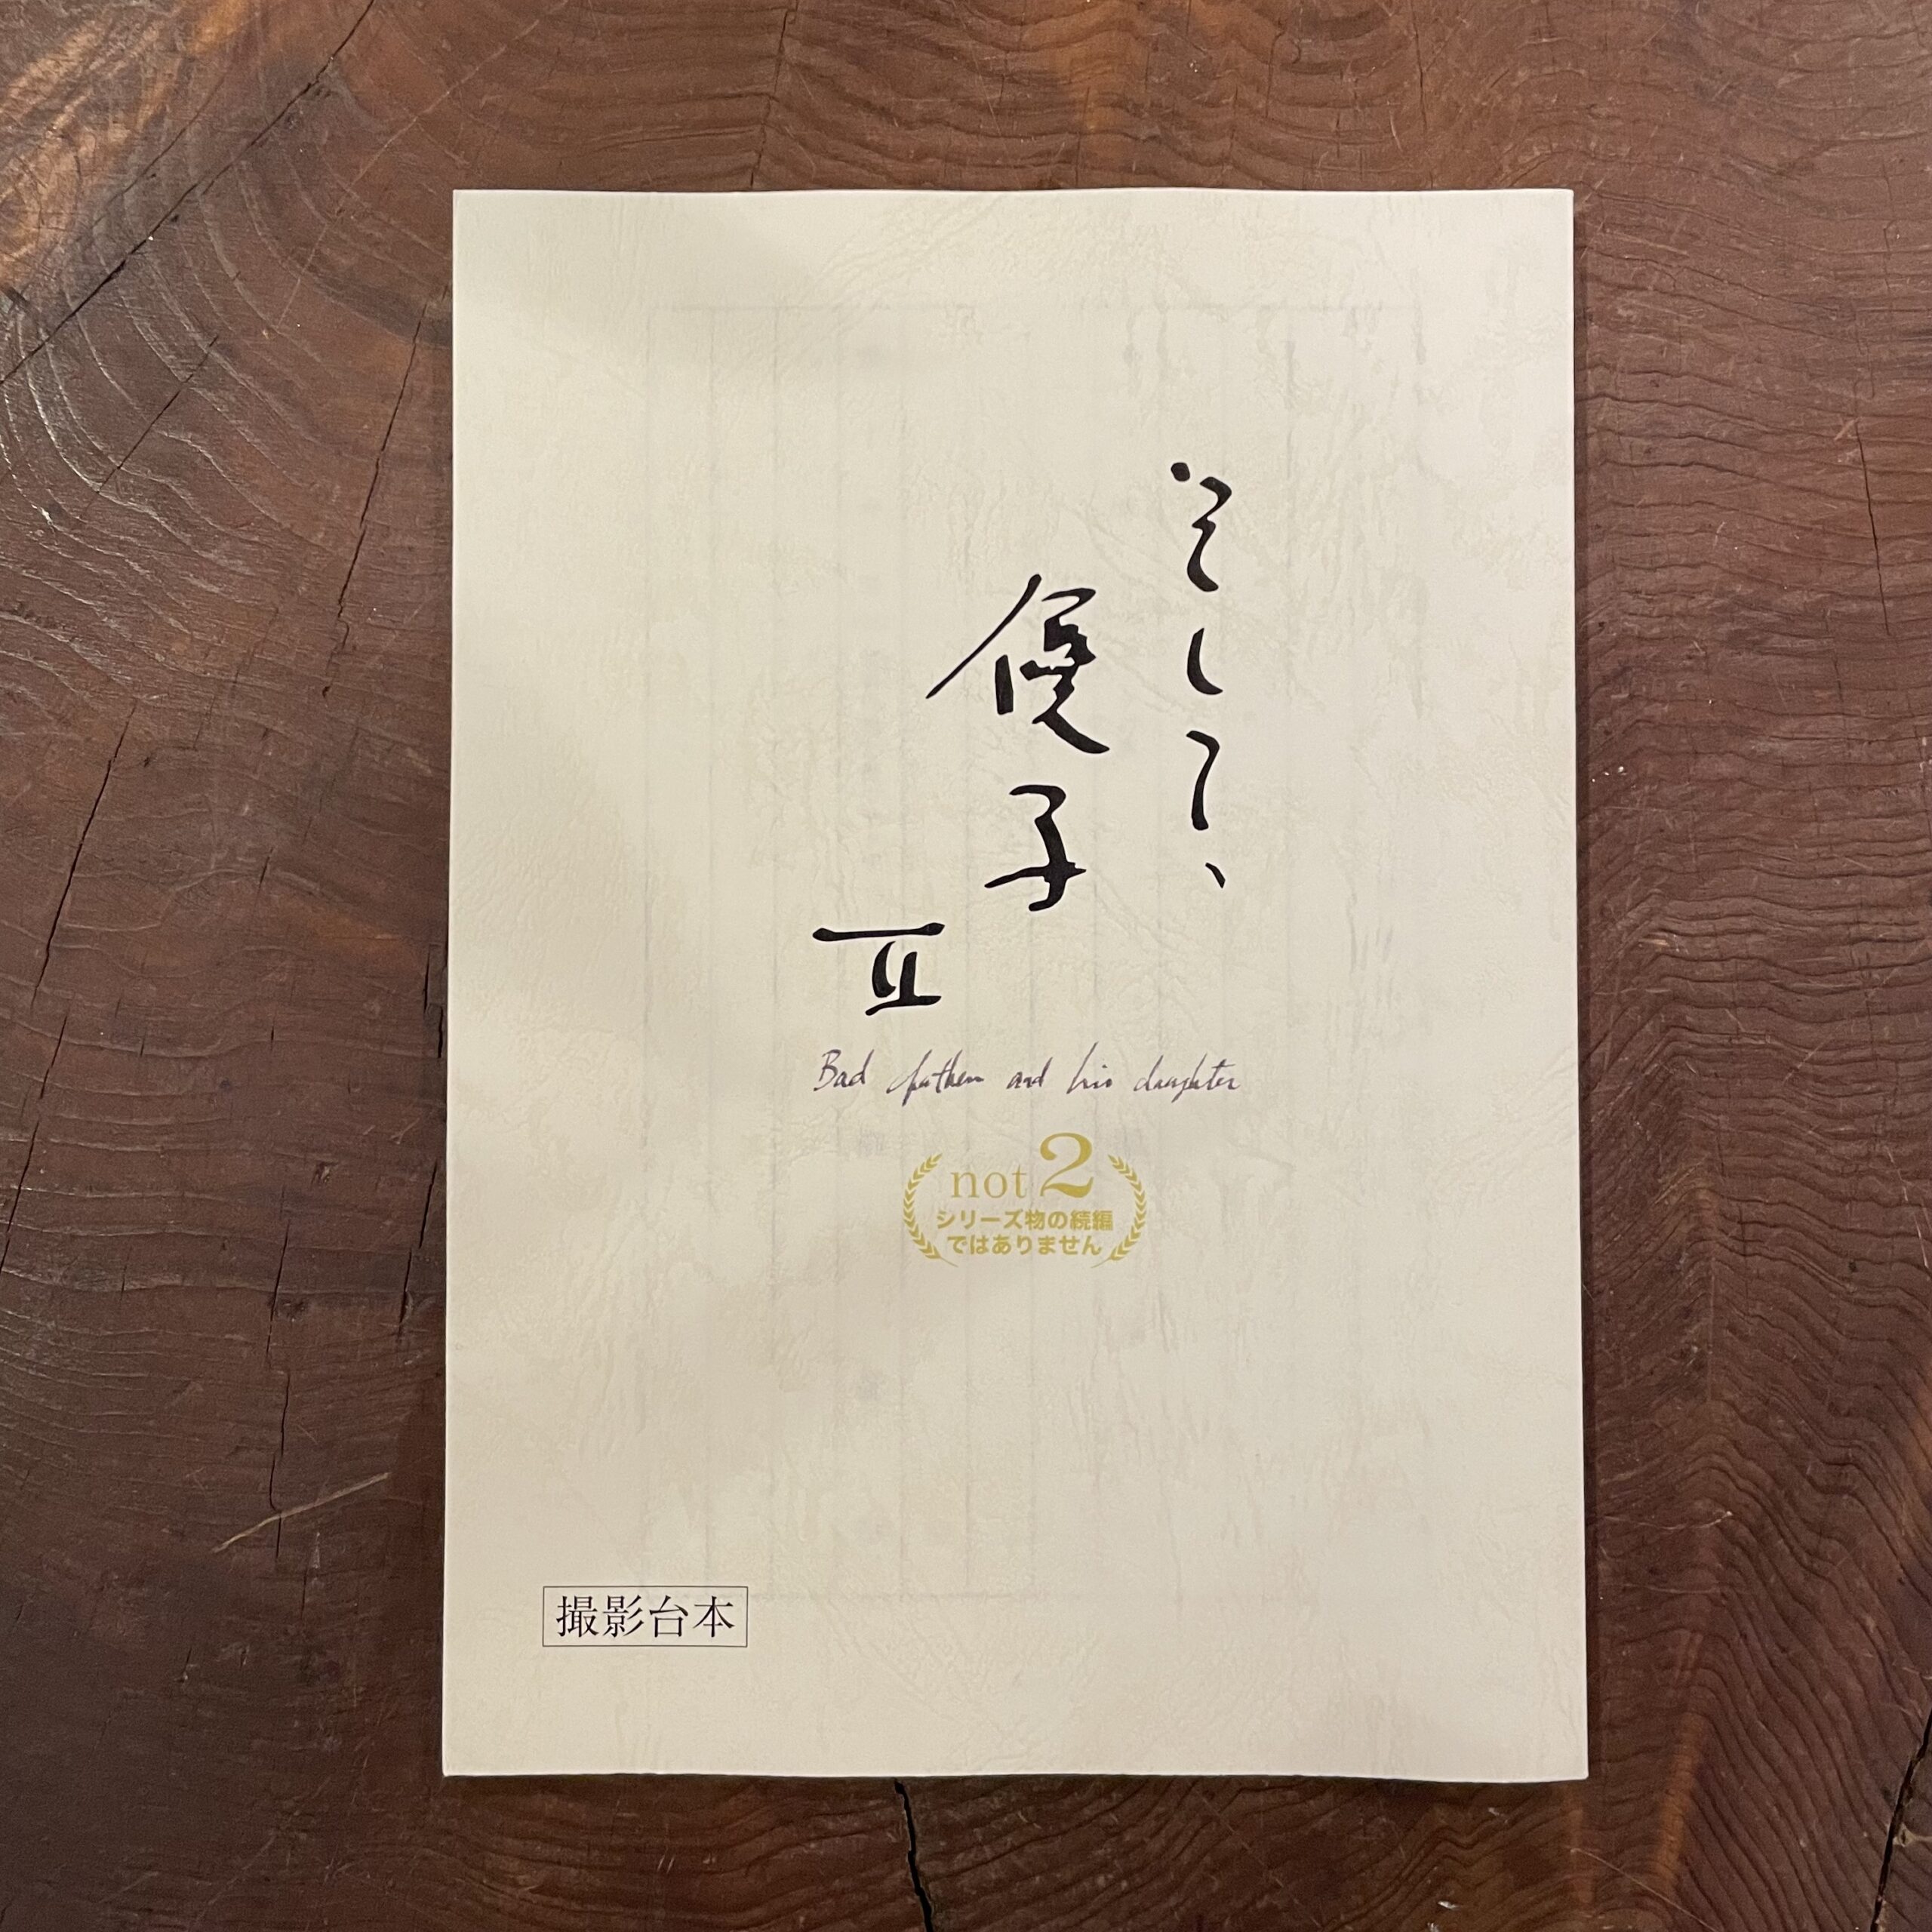 そして、
優子
Ⅱ
Bad father and his daughter
not 2
シリーズ物の続編
ではありません
撮影台本